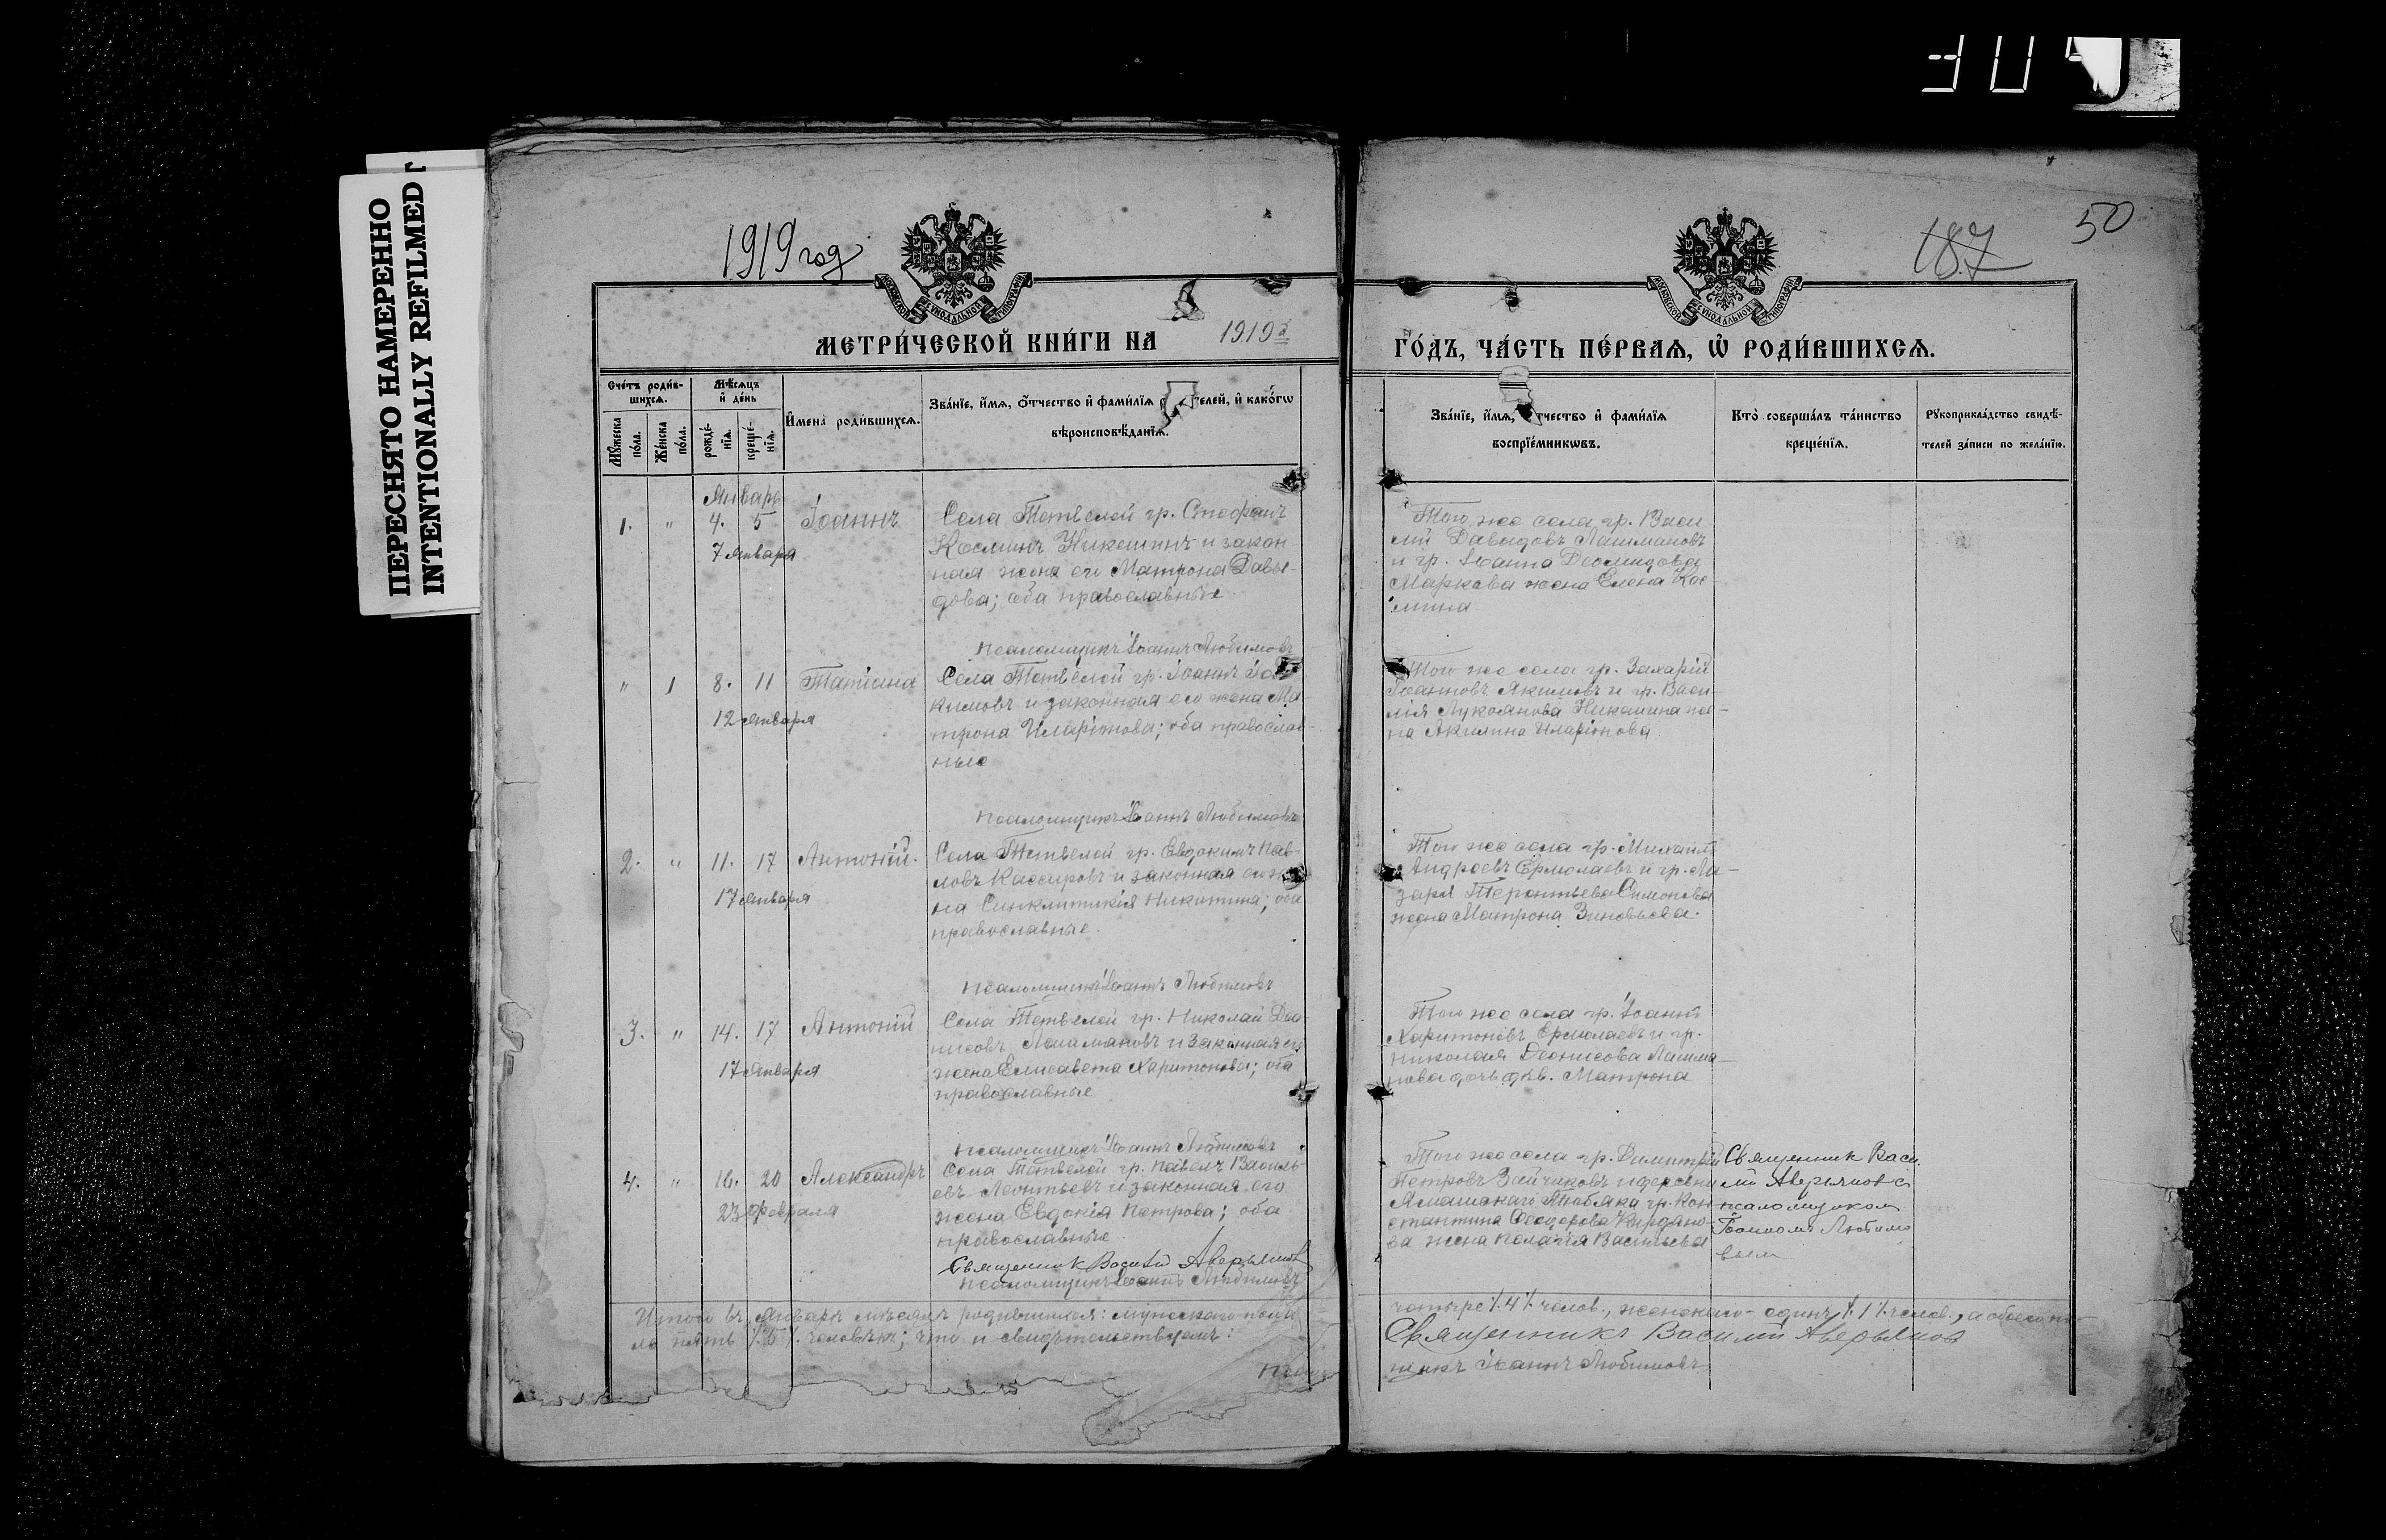 ПЕРЕСНЯТО НАМЕРЕННО
INTENTIONALLY REFILMED
1919 год
187
50
МОСКОВСКОЙ СѴНОДАЛЬНОЙ ТИПОГРАФІИ
МОСКОВСКОЙ СѴНОДАЛЬНОЙ ТИПОГРАФІИ
МЕТРИ́ЧЕСКОЙ КНИ́ГИ НА 1919 г.
ГО́ДЪ, ЧА́СТЬ ПЕ́РВАЯ, Ѡ РОДИ́ВШИХСѦ.
Сче́тъ роди́в-
шихсѧ.
Мꙋ́жеска по́ла.
Же́нска по́ла.
Мѣ́сѧцъ
и҆ де́нь
рожде́-
нїѧ.
креще́-
нїѧ.
И҆мена̀ роди́вшихсѧ.
Зва́нїе, и҆́мѧ, о҆́тчество и҆ фами́лїѧ телей, и҆ како́гѡ
вѣроисповѣ́данїѧ.
Зва́нїе, и҆́мѧ, тчество и҆ фами́лїѧ
воспрїе́мникѡвъ.
Кто̀ соверша́лъ та́инство
креще́нїѧ.
Рꙋкоприкла́дство свидѣ́-
телей за́писи по жела́нїю.
Январь
1. " 4. 5 Іоаннъ
7 января
Села Тетвелей гр. Стефанъ
Косминъ Никешинъ и закон
ная жена его Матрона Давы-
дова; оба православные.
псаломщикъ Іоаннъ Любимовъ
Того же села гр. Васи
лій Давыдовъ Лашмановъ
и гр. Іоанна Деомидова
Маркова жена Елена Кос-
мина
" 1 8. 11 Татіана
12 января
Села Тетвелей гр. Іоаннъ
кимовъ и законная его жена Ма-
трона Иларіонова; оба православ-
ные
псаломщикъ Іоаннъ Любимовъ
Того же села гр. Захарій
Іоанновъ Акимовъ и гр. Васи-
лія Лукоянова Никешина же-
на Акилина Иларіонова
2. " 11. 17 Антоній.
17 января
Села Тетвелей гр. Евдокимъ Пав-
ловъ и законная его
на Синклитикія Никитина; оба
православные.
псаломщикъ Іоаннъ Любимовъ
Того же села гр. Михаилъ
Андреевъ Ермолаевъ и гр. Ла-
заря Терентьева Симонова
жена Матрона Зиновьева.
3. " 14. 17 Антоній
17 января
Села Тетвелей гр. Николай Део-
нисовъ Лашмановъ и законная его
жена Елисавета Харитонова; оба
православные
псаломщикъ Іоаннъ Любимовъ
Того же села гр. Іоаннъ
Харитоновъ Ермолаевъ и гр.
Николая Деонисова Лашма-
нова дочь дѣв. Матрона
4. " 16. 20 Александръ
23 февраля
Села Тетвелей гр. Павелъ Василь-
евъ Леонтьевъ и законная его
жена Евдокія Петрова; оба
православные.
Священник Василий Аверьянов
псаломщикъ Іоаннъ Любимовъ
Того же села гр. Димитрій
Петровъ Зайчиковъ и деревни
гр. Кон
стантина Феодорова
ва жена Пелагія Васильева
Священник Васи
лий Аверьянов с
псаломщиком
Іоанном Любимо
вым
Итого въ Январѣ мѣсяцѣ родившихся: мужескаго пола
четыре /.4/. челов., женскаго - одинъ /.1/. челов., а обоего по-
ла пять /.5/. человѣкъ; что и свидѣтельствуемъ:
Священникъ Василий Аверьянов
щикъ Іоаннъ Любимовъ